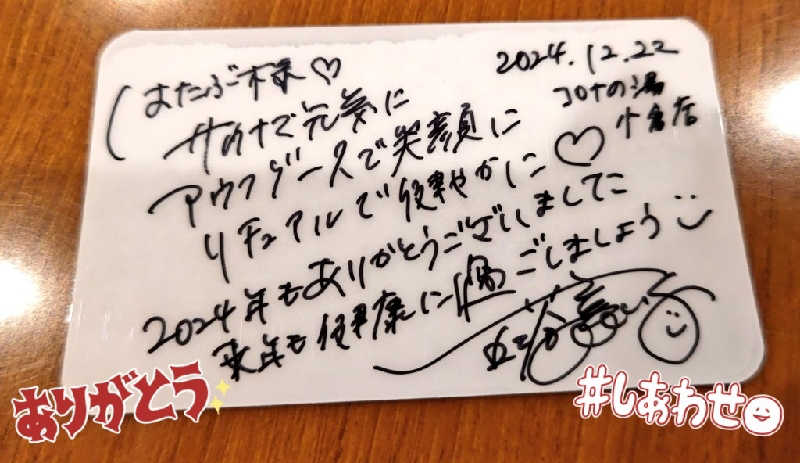 またぶー様♡
2024.12.22
コロナの湯
小倉店
サウナで元気に
アウフグースで笑顔に
リチュアルで健やかに♡
2024年もありがとうございました
来年も健康に過ごしましょう
ありがとう
#しあわせ